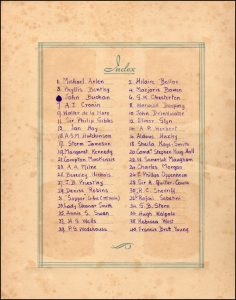 Index
1. Michael Arlen
2. Hilaire Belloc
3. Phyllis Bentley
4. Marjorie Bowen
John Buchan
6. G.K. Chesterton
7. A.J. Cronin
8. Warwick Deeping
9. Walter de la Mare
10. John Drinkwater
11. Sir Philip Gibbs
12. Elinor Glyn
13. Ian Hay
14. A.P. Herbert
16. A.S.M. Hutchinson
Aldous Huxley
17. Storm Jameson
18. Sheila Kaye-Smith
19. Margaret Kennedy
20. Comdr Stephen King-Hall
21. Compton Mackenzie
22. W. Somerset Maugham
23. A.A. Milne
24. Charles Morgan
25. Beverley Nichols
26. E. Phillips Oppenheim
27. J.B. Priestley
28. Sir A. Quiller-Couch
29. Denise Robins
30. R.C. Sherriff
31. Sapper
32. Rafael Sabatini
33. Lady Eleanor Smith
34. G.B. Stern
35. Annie S. Swan
36. Hugh Walpole
37. H.G. Wells
38. Rebecca West
39. P.G. Wodehouse
40. Francis Brett Young